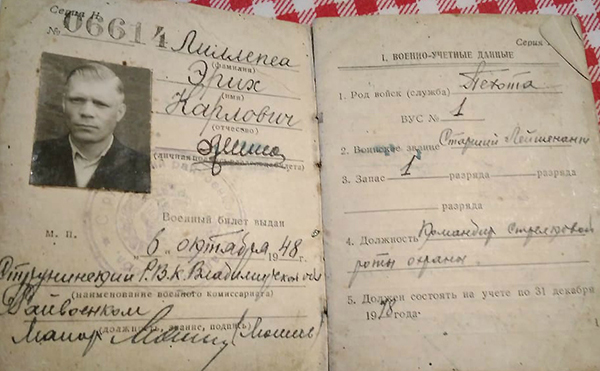 Серия Н
№ 06614
Лиллепеа
(фамилия)
Эрих
(имя)
Карлович
(отчество)
(личная
Военный билет выдан
М. П.
„6„ октября 1948г.
Струнинский Р.В.К. Владимирской обл
(наименование военного комиссариата)
Райвоенком
(должность, звание, подпись)
Майор
Серия
I. ВОЕННО-УЧЕТНЫЕ ДАННЫЕ
1. Род войск (служба) Пехота
ВУС № 1
2. Воинское звание Старший Лейтенант
3. Запас 1 разряда разряда
разряда
4. Должность Командир Стрелковой
роты охраны.
5. Должен состоять на учете по 31 декабря
19 года.